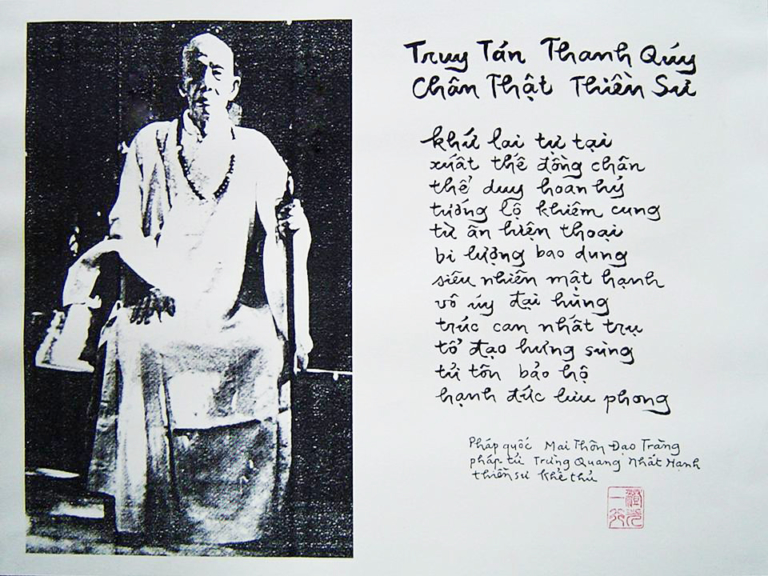 Truy Tán Thanh Qúy
Chân Thật Thiền Sư
khứ lai tự tại
xuất thế đồng chân
thể duy hoan hỷ
tướng lộ khiêm cung
từ ân hiện thoại
bi lượng bao dung
siêu nhiên mật hạnh
vô úy đại hùng
trúc can nhất trụ
tổ đạo hưng sùng
tử tôn bảo hộ
hạnh đức lưu phong
Pháp quốc Mai Thôn Đạo Tràng
pháp tử Trừng Quang Nhất Hạnh
thiền sư khể thủ